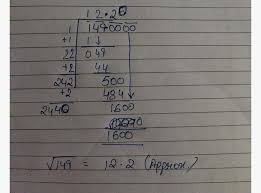 12.20
1 | 1490000
+1 | 1↓
22 | 049
+2 | 44
242 | 500
+2 | 484
2440 | 1600
1600
√149 = 12.2 (Approx)